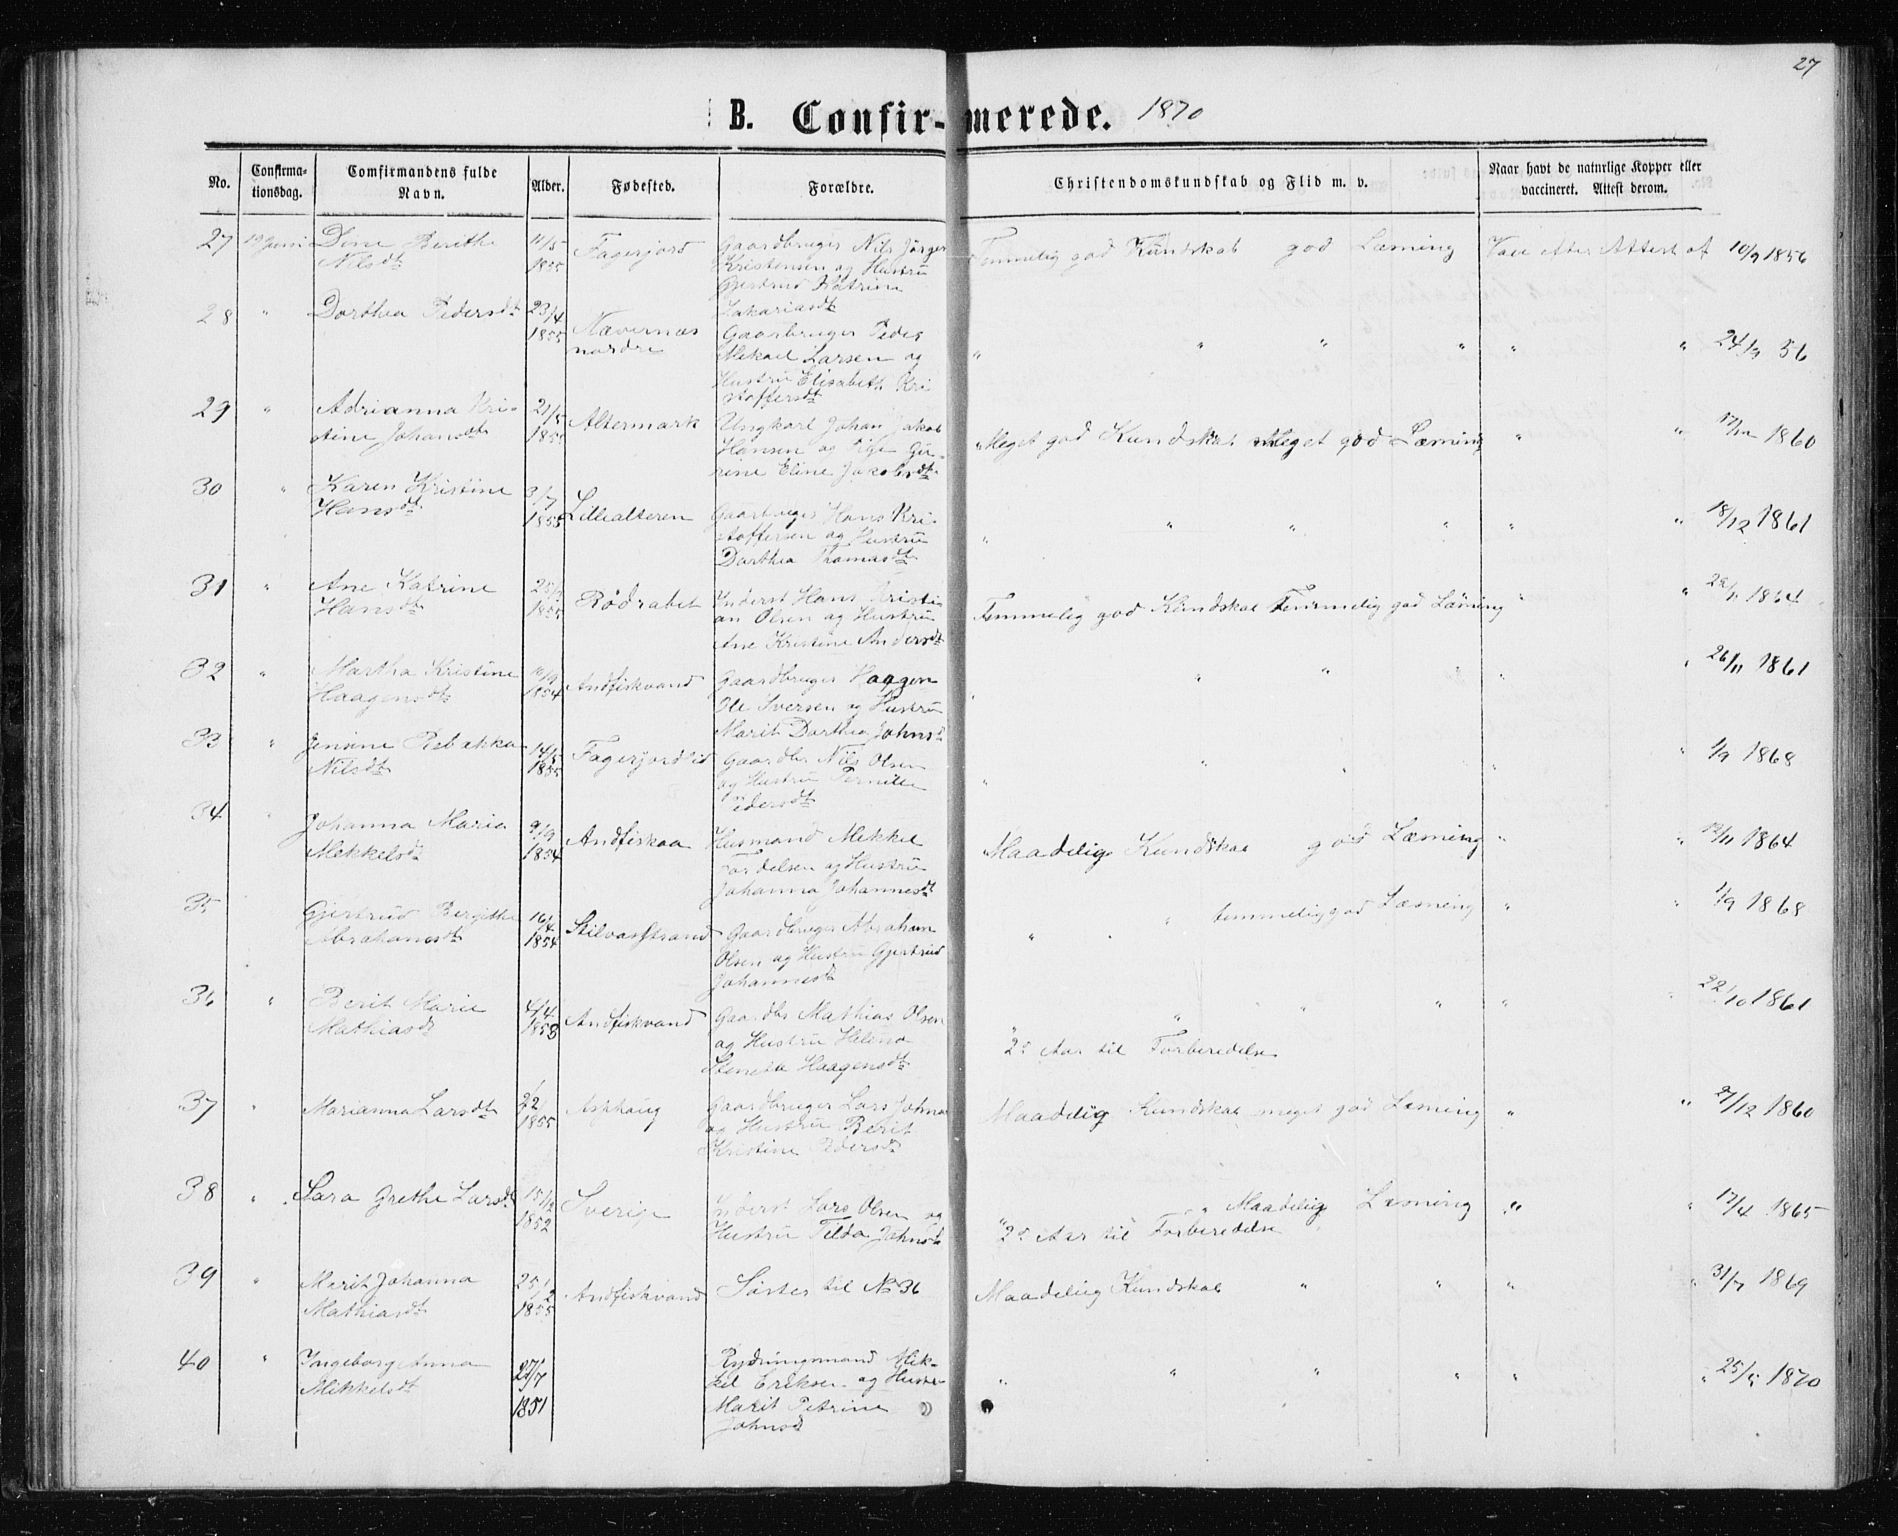 27
B. Confirmerede. 1870
No.
Confirmationsdag.
Comfirmandens fulde Navn.
Alder.
Fødested.
Forældre.
Christendomskundskab og Flid m. v.
Naar havt de naturlige Kopper eller vaccineret. Attest derom.
27 19 Juni Berithe 11/5 Fagerjord Gaardbruger Nils Jørgen Temmelig god Kundskab god Læsning Vacc. etter Attest af 10/9 1856
Nilsdt 1855 Kristensen og Hustru
Gjertrud Katrine
28 " Dorthea Pedersdt 23/4 Zakariasdt
1855 Nævernæs Gaardbruger Peder " " " " " " 24/9 56
nordre Mikael Larsen og
Hustru Elisabeth Kri
stoffersdt
29 " Adrianna Kri- 21/5 Altermark Ungkarl Johan Jakob " Meget god Kundskab meget god Læsning " " 17/12 1860
stine Johansdt 1855 Hansen og Pige
Eline Jakobsdt
30 " Karen Kristine 3/7
Hansdt 1855 Lillealteren Gaardbruger Hans Kri- " " " " " " 18/12 1861
stoffersen og Hustru
Dorthea Thomasdt
31 " Ane Katrine
Hansdt 1855 Rödrabet Inderst Hans Kristi- Temmelig god Kundskab Temmelig god Læsning " " 22/11 1864
an Olsen og Hustru
Ane Kristine Andersdt
32 " Martha Kristine
Haagensdt 1854 Andfiskvand Gaardbruger Haagen " " " " " 26/11 1861
Ole Iversen og Hustru
Marit Dorthea Johnsdt
33 " Jensine Rebekka 14/5 Fagerjordlid Gaardbr Nils Olsen " " " " " 1/9 1868
Nilsdt 1855 og Hustru Pernille
Pedersdt
34 " Johanna Maria 9/9
Mikkelsdt 1854 Andfiskaa Husmand Mikkel Maadelig Kundskab god Læsning " " 12/11 1864
Tordelsen og Hustru
Johanna Johannesdt
35 Gjertrud Bergithe 16/4 " " temmelig god Læsning " " 1/9 1868
Abrahamsdt 1854 Stilvasstrand Gaardbruger Abraham
Olsen og Hustru Gjertrud
Johannesdt
36 " Berit Marie 4/4
Mathiasdt 1853 Andfiskvand Gaardbr Mathias Olsen " " " " " 22/10 1861
og Hustru Helena 2º Aar til Forberedelse
Haagensdt
37 " Marianna Larsdt 2/2 1855 Asphaug Gaardbruger Lars Johns Maadelig Kundskab meget god Læsning " " 27/12 1860
og Hustru Berit
Kristine Pedersdt
38 " Sara Grethe Larsdt 15/12 1852 Sverige Inderst Lars Olsen og " Maadelig Læsning " " 17/4 1865
Hustru Tilda Johnsdt 2º Aar til Forberedelse
39 " Merit Johanna 25/2
Mathiasdt 1855 Andfiskvand Söster til No 36 Maadelig Kundskab " " " " 31/7 1869
40 " Ingeborg Anna 27/7 Rydningsmand Mik- " " " " " " 25/5 1870
Mikkelsdt 1851 kel Eriksen og Hustru
Marit Petrine
Johnsdt